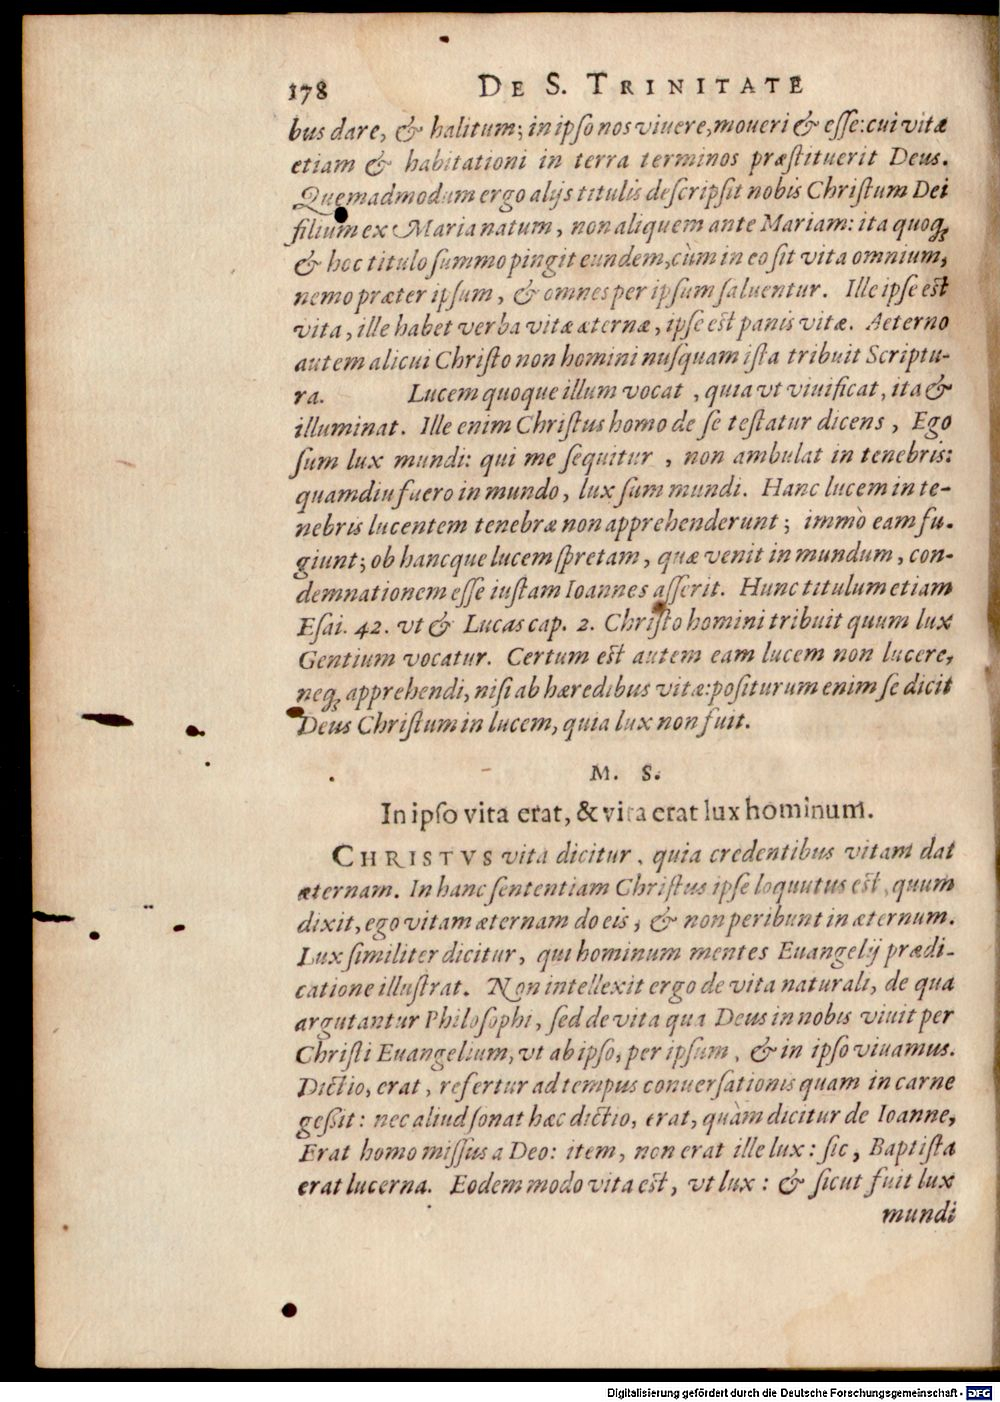 178 DE S. TRINITATE
bus dare, & halitum; in ipso nos viuere, moueri & esse: cui vitæ
etiam & habitationi in terra terminos præstituerit Deus.
Quemadmodum ergo alijs titulis descripsit nobis Christum Dei
filium ex Maria natum, non aliquem ante Mariam: ita quoq;
& hoc titulo summo pingit eundem, cùm in eo sit vita omnium,
nemo præter ipsum, & omnes per ipsum saluentur. Ille ipse est
vita, ille habet verba vitæ æternæ, ipse est panis vitæ. Aeterno
autem alicui Christo non homini nusquam ista tribuit Scriptu-
ra. Lucem quoque illum vocat, quia vt viuificat, ita &
illuminat. Ille enim Christus homo de se testatur dicens, Ego
sum lux mundi: qui me sequitur, non ambulat in tenebris:
quamdiu fuero in mundo, lux sum mundi. Hanc lucem in te-
nebris lucentem tenebræ non apprehenderunt; immò eam fu-
giunt; ob hancque lucem spretam, quæ venit in mundum, con-
demnationem esse iustam Ioannes asserit. Hunc titulum etiam
Esai. 42. vt & Lucas cap. 2. Christo homini tribuit quum lux
Gentium vocatur. Certum est autem eam lucem non lucere,
neq; apprehendi, nisi ab hæredibus vitæ: positurum enim se dicit
Deus Christum in lucem, quia lux non fuit.
M. S.
In ipso vita erat, & vita erat lux hominum.
CHRISTVS vita dicitur, quia credentibus vitam dat
æternam. In hanc sententiam Christus ipse loquutus est, quum
dixit, ego vitam æternam do eis, & non peribunt in æternum.
Lux similiter dicitur, qui hominum mentes Euangelij prædi-
catione illustrat. Non intellexit ergo de vita naturali, de qua
argutantur Philosophi, sed de vita qua Deus in nobis viuit per
Christi Euangelium, vt ab ipso, per ipsum, & in ipso viuamus.
Dictio, erat, refertur ad tempus conuersationis quam in carne
gessit: nec aliud sonat hæc dictio, erat, quàm dicitur de Ioanne,
Erat homo missus a Deo: item, non erat ille lux: sic, Baptista
erat lucerna. Eodem modo vita est, vt lux: & sicut fuit lux
mundi
Digitalisierung gefördert durch die Deutsche Forschungsgemeinschaft - DFG